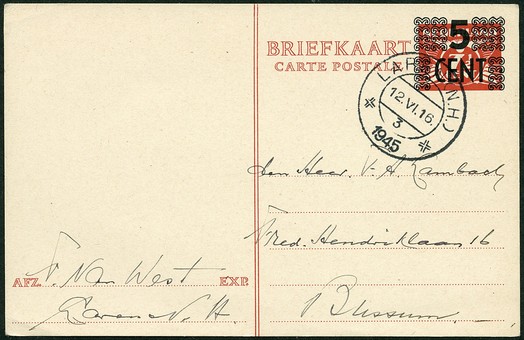 BRIEFKAART
CARTE POSTALE
5
CENT
LAREN (N.H.)
12.VI.16.
3
1945
den Heer V. A. Kambach
Fred. Hendriklaan 16
Bussum
AFZ. V. Van West EXP.
Laren N.H.